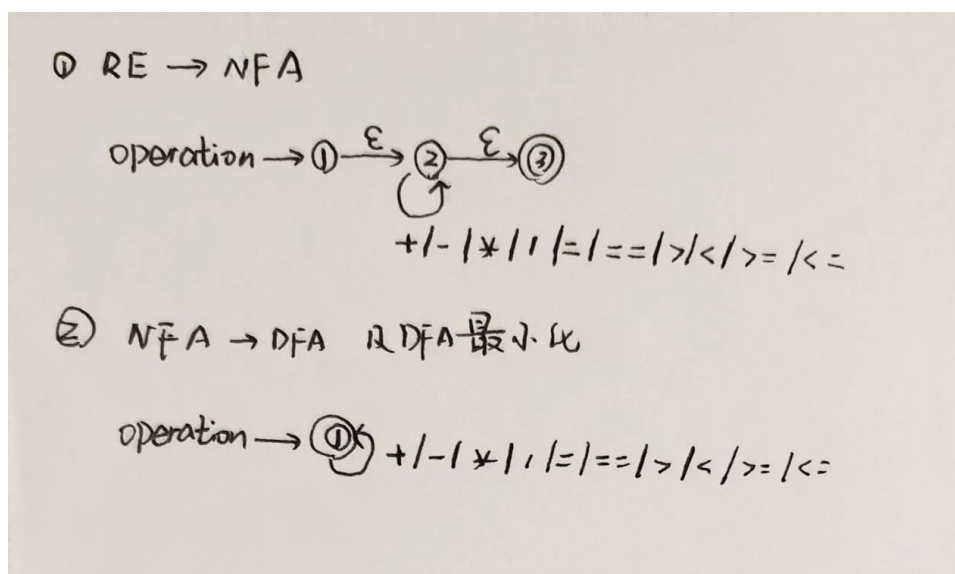 ① RE → NFA
operation → ① ε → ② ε → ③
+/-/*/ / /=/==/>/</>=/<=
② NFA → DFA 及DFA最小化
operation → ① +/-/*/ / /=/==/>/</>=/<=